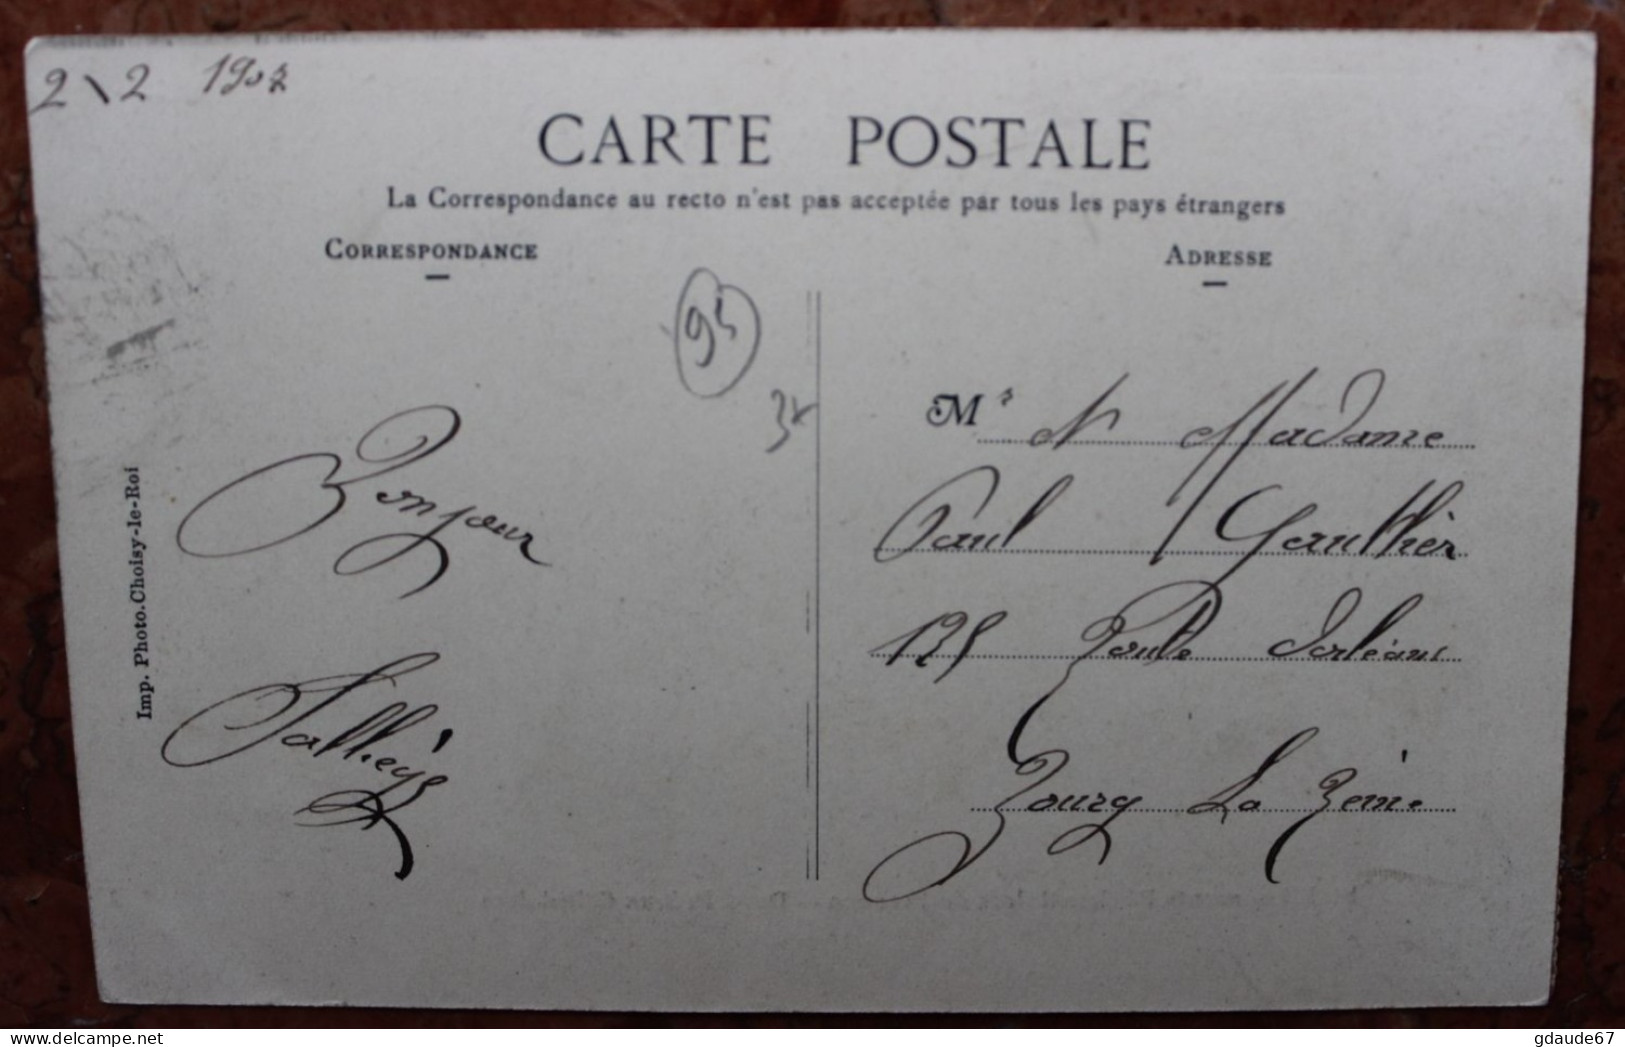 2\2 1907
CARTE POSTALE
La Correspondance au recto n'est pas acceptée par tous les pays étrangers
CORRESPONDANCE
ADRESSE
95
3x
Mr N Madame
Paul Gauthier
125 Route Dorléans
Bourg La Reine
Bonjour
Imp. Photo.Choisy-le-Roi
gdaude67